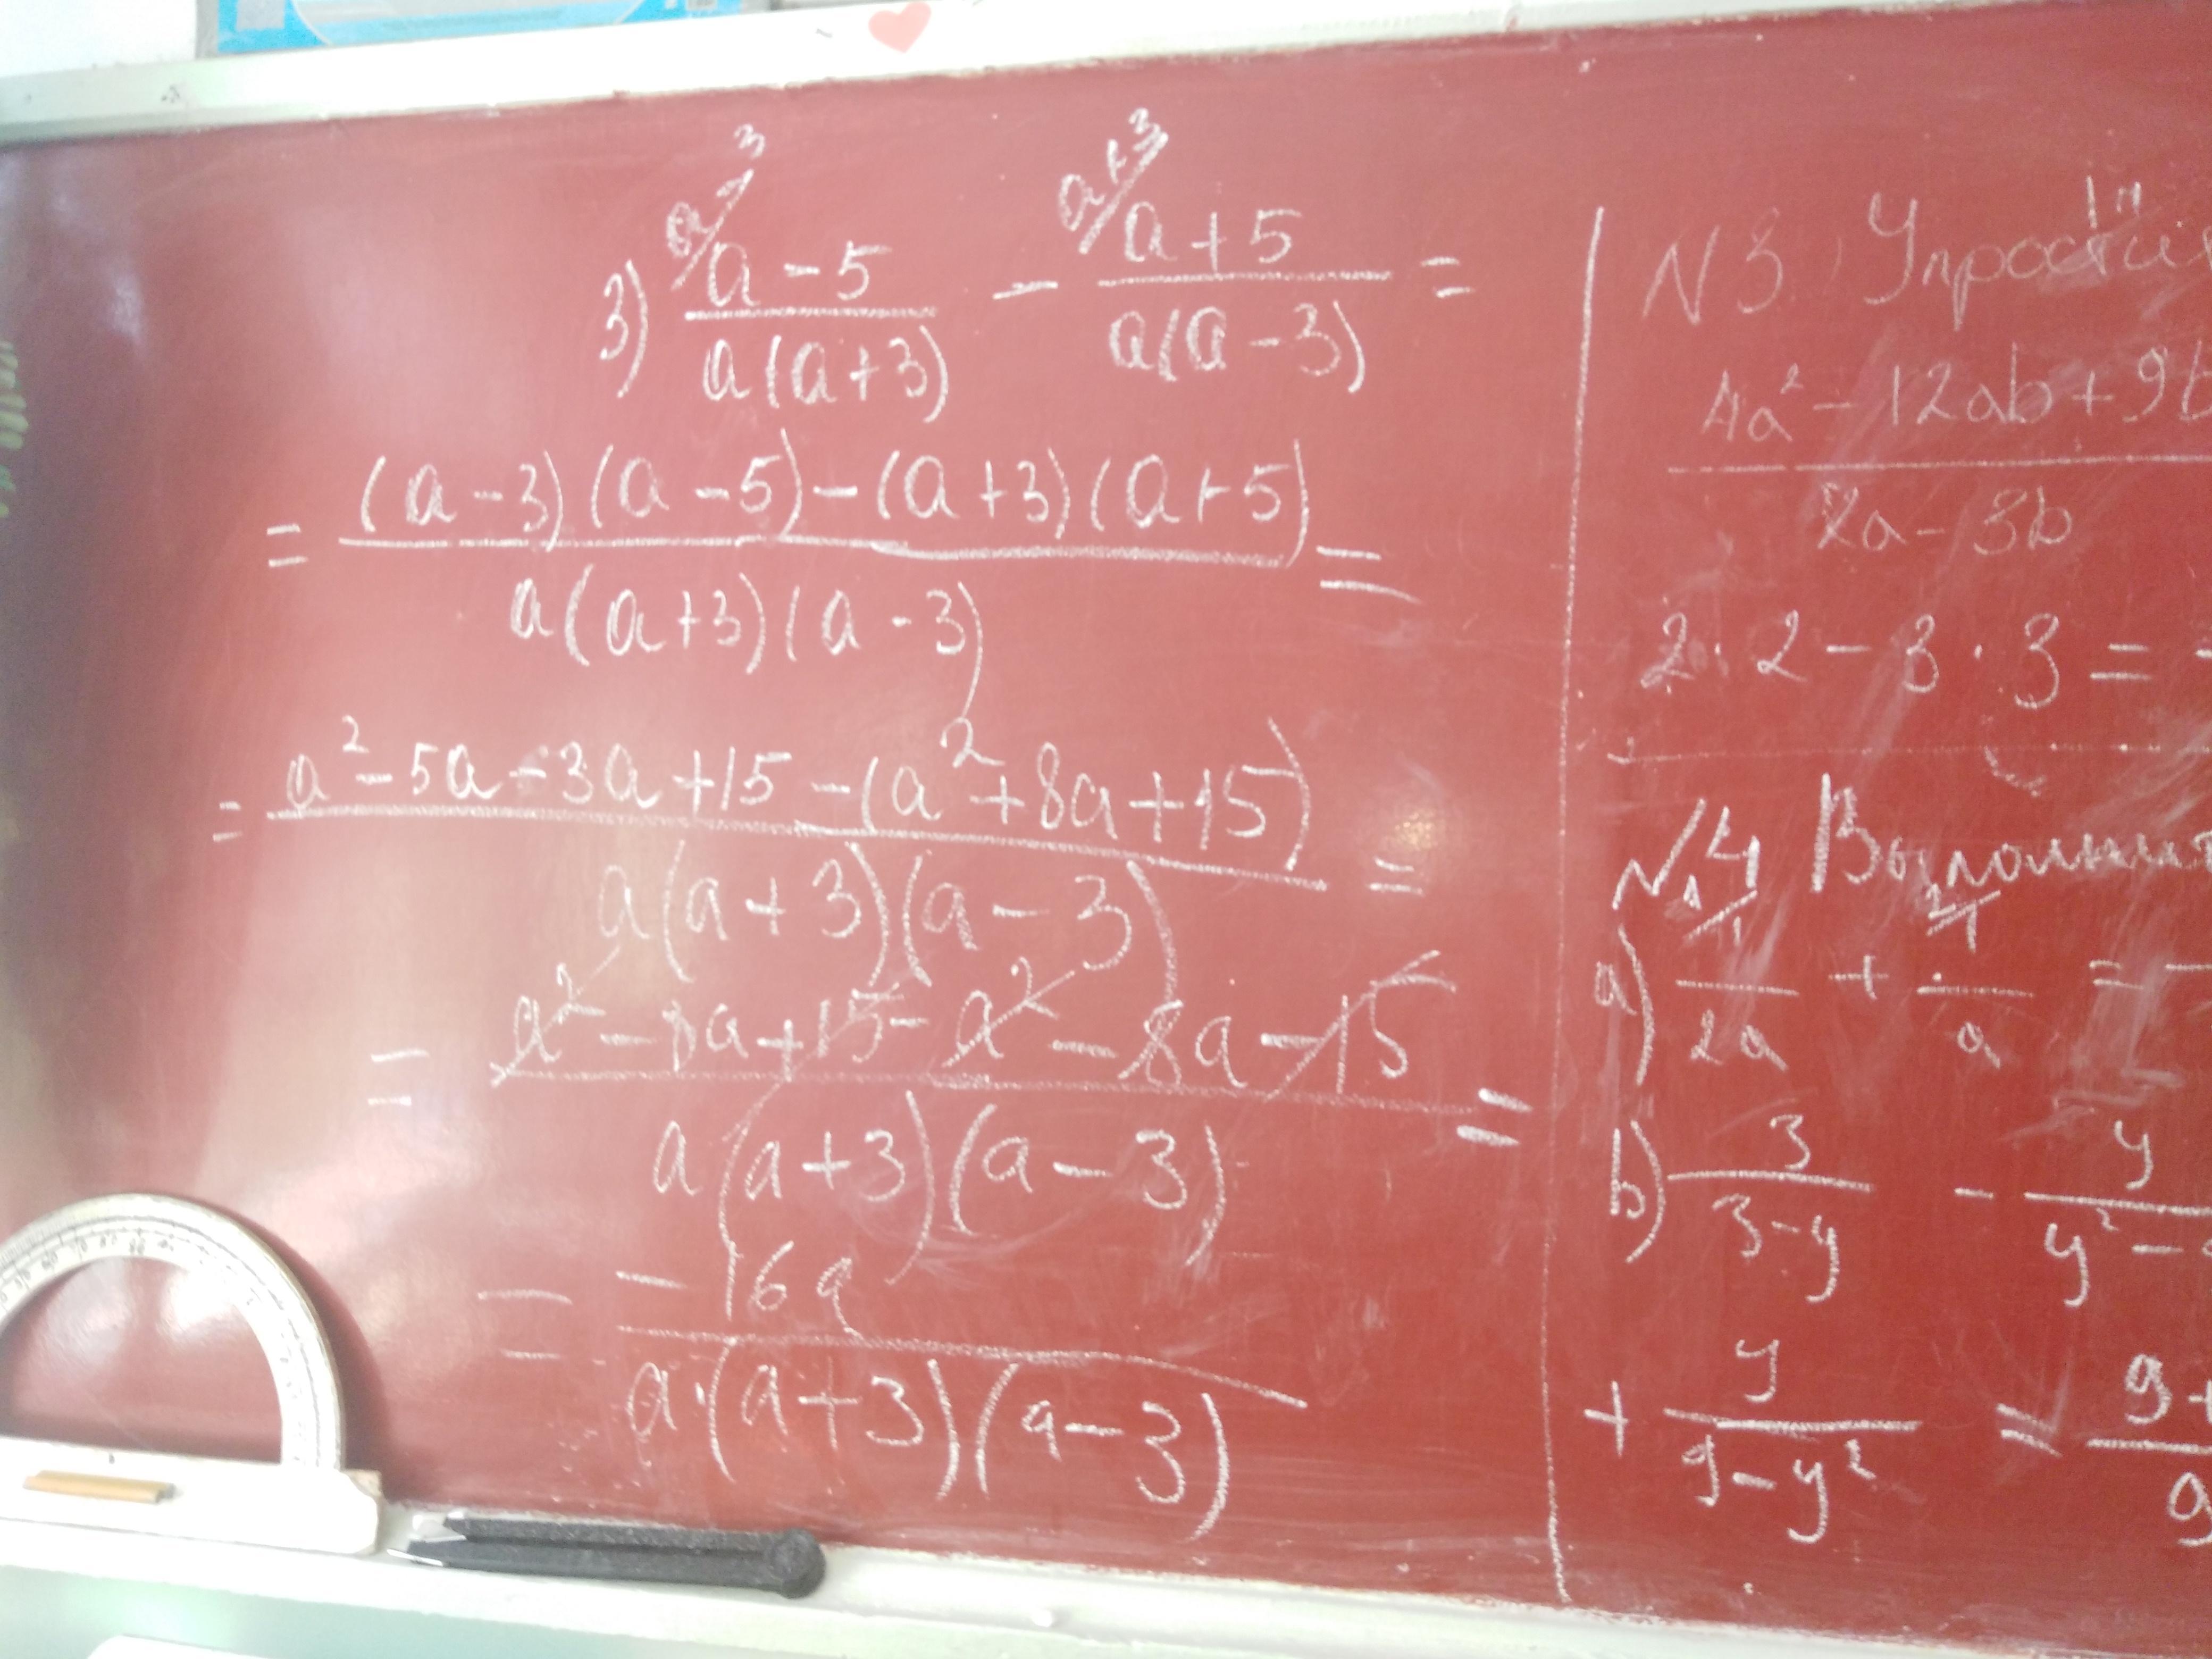 3) a-3/ (a - 5)/(a(a+3)) - a+3/ (a + 5)/(a(a - 3)) =
= ((a - 3)(a - 5) - (a + 3)(a + 5))/(a(a+3)(a - 3)) =
= (a² - 5a - 3a + 15 - (a² + 8a + 15))/(a(a + 3)(a - 3)) =
= (a² - 8a + 15 - a² - 8a - 15)/(a(a + 3)(a - 3)) =
= (-16a)/(a·(a + 3)(a - 3))
N3
4a² - 12ab + 9b
2a - 3b
2·2 - 3·3 =
N4
a) 1/ 1/(2a) + 2/ 1/a =
b) 3/(3-y) - y/(y² -
+ y/(9 - y²) = 9+
9